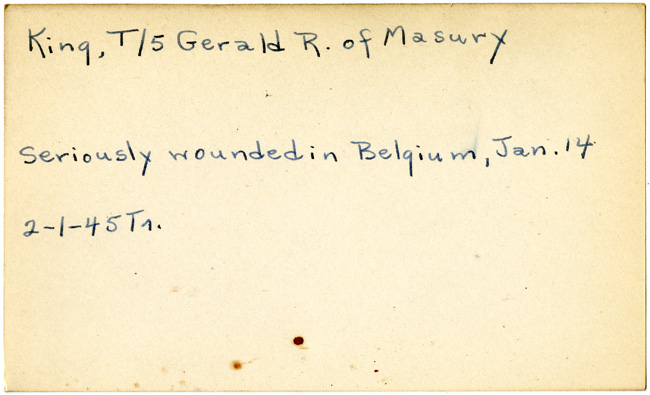 King, T/5 Gerald R. of Masury
Seriously wounded in Belgium, Jan. 14
2-1-45 Tr.